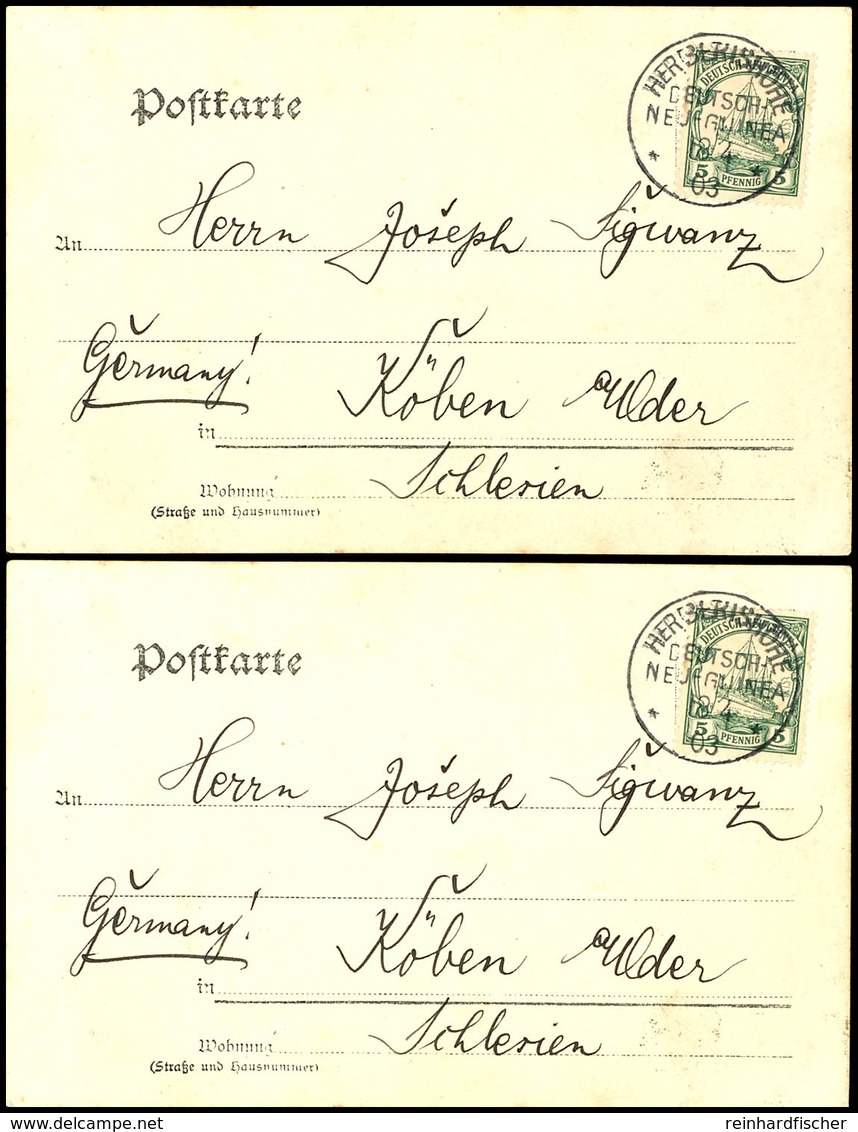 HERBERTSHÖHE
DEUTSCH-
NEU-GUINEA
18/4
03
DEUTSCH-NEU-GUINEA
5 PFENNIG 5
Postkarte
An Herrn Joseph Sigwanz
Germany! Köben a/Oder
in
Schlesien
Wohnung
(Straße und Hausnummer)
HERBERTSHÖHE
DEUTSCH-
NEU-GUINEA
18/4
03
DEUTSCH-NEU-GUINEA
5 PFENNIG 5
Postkarte
An Herrn Joseph Sigwanz
Germany! Köben a/Oder
in
Schlesien
Wohnung
(Straße und Hausnummer)
reinhardfischer